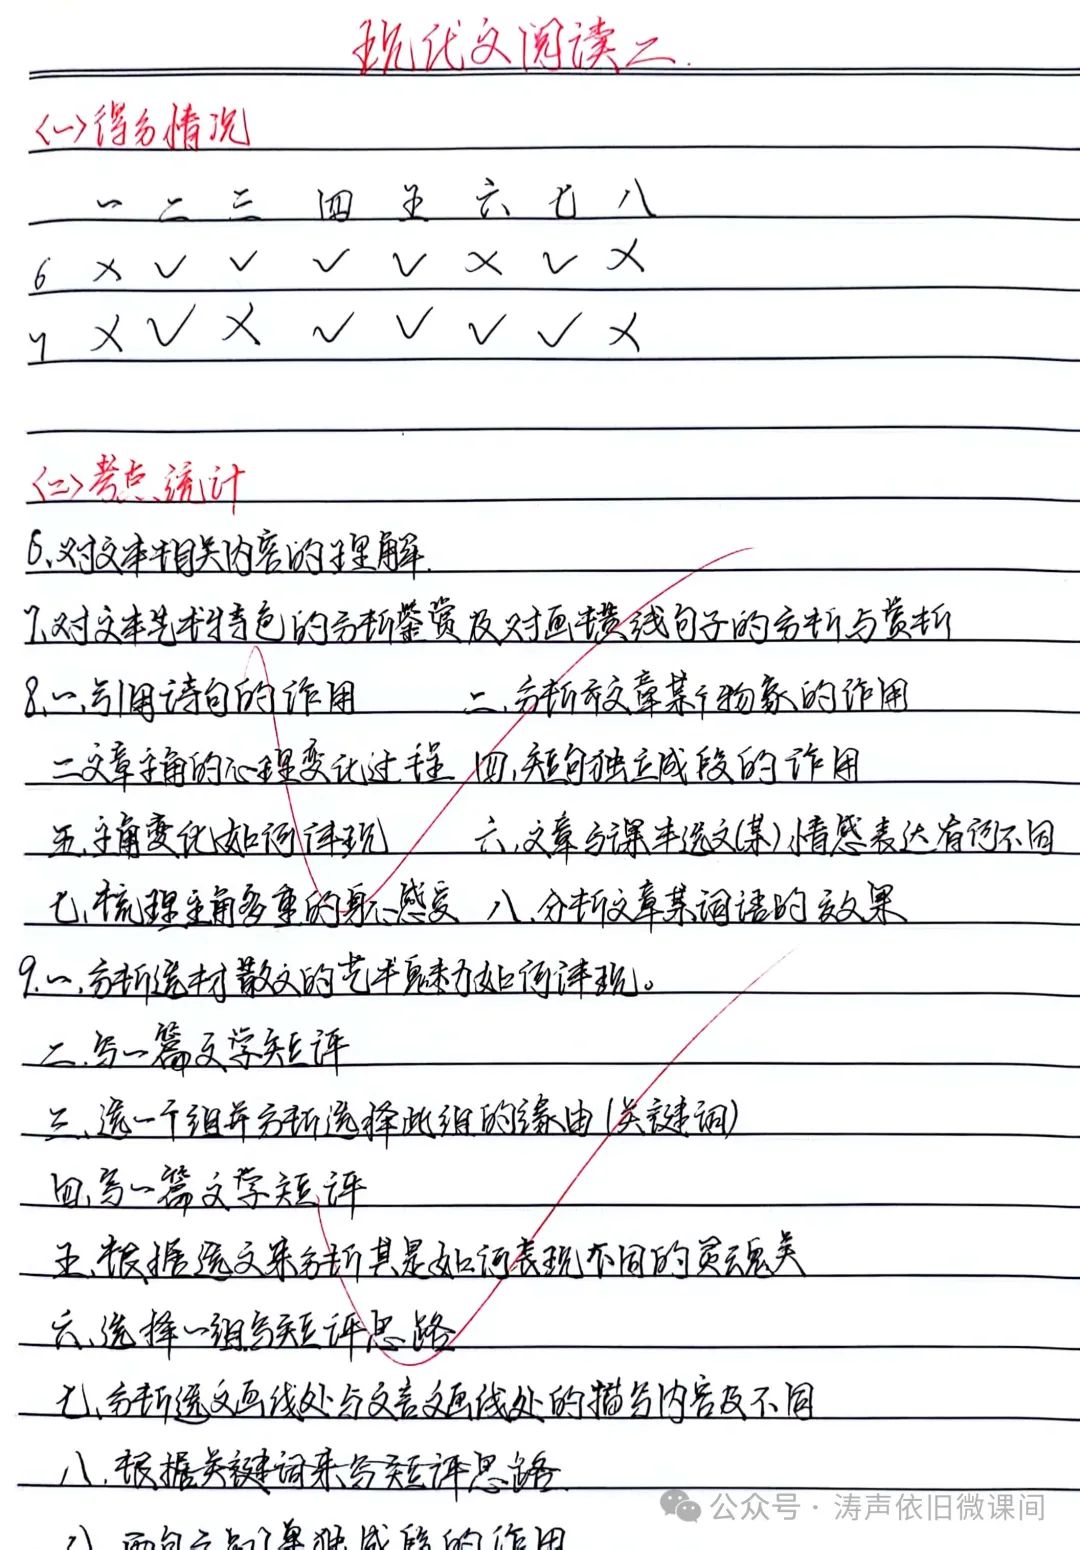 现代文阅读二.
<一>得分情况
一 二 三 四 五 六 七 八
6 × ✓ ✓ ✓ ✓ × ✓ ×
7 × ✓ × ✓ ✓ ✓ ✓ ×
<二>考点统计
6、对文本相关内容的理解.
7、对文本艺术特色的分析鉴赏及对画横线句子的分析与赏析
8、一、引用诗句的作用 二、分析文章某个物象的作用
三文章主角的心理变化过程 四、短句独立成段的作用
五、主角变化如何体现 六、文章与课本选文(某)情感表达有何不同
七、梳理主角多重的身心感受 八、分析文章某词语的效果
9、一、分析选材散文的艺术魅力如何体现。
二、写一篇文学短评
三、选一个组并分析选择此组的缘由(关键词)
四、写一篇文学短评
五、根据选文来分析其是如何表现不同的灵魂美
六、选择一组写短评思路
七、分析选文画线处与文言文画线处的描写内容及不同
八、根据关键词来写短评思路
公众号·涛声依旧微课间